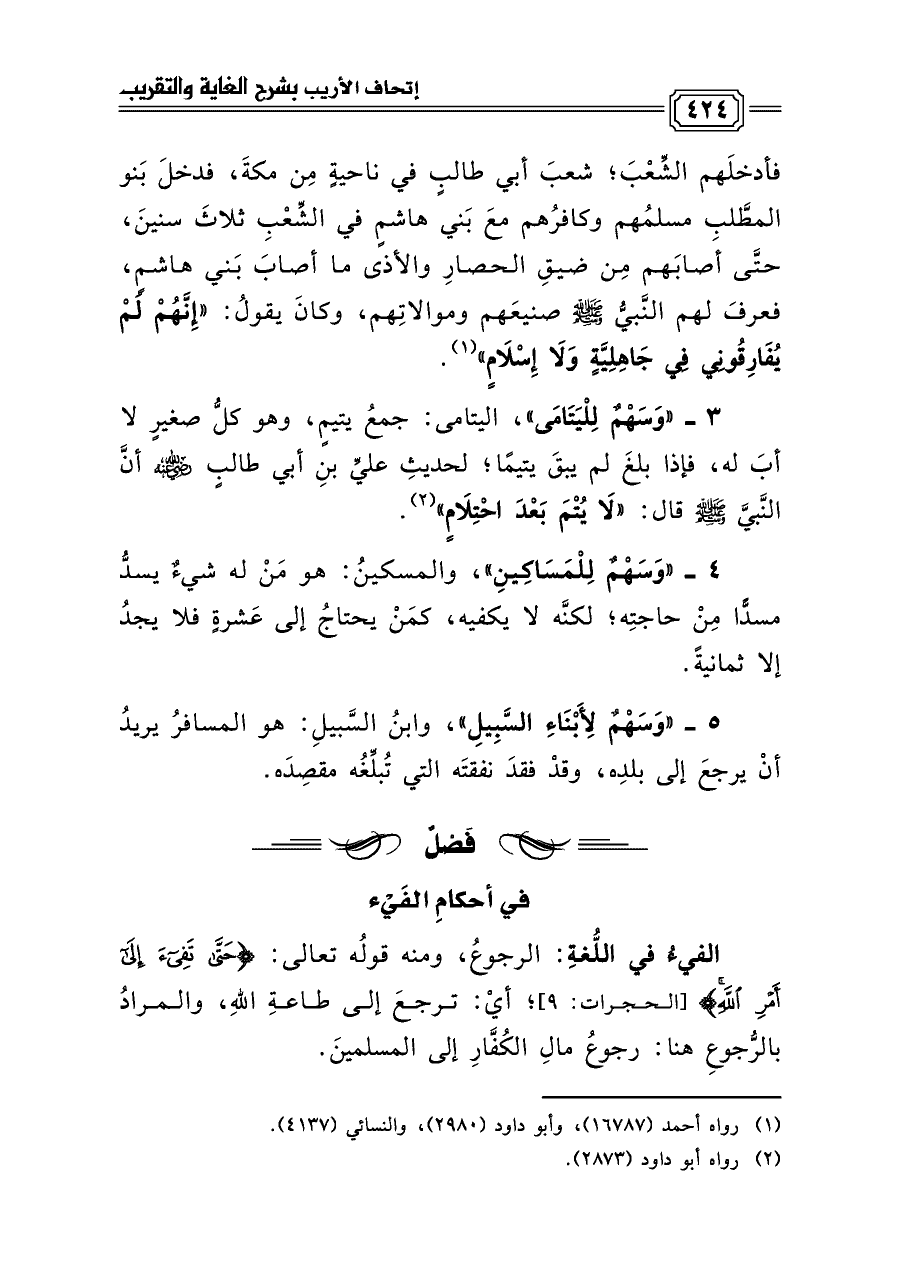 إتحاف الأريب بشرح الغاية والتقريب
٤٢٤
فأدخلَهم الشِّعْبَ؛ شعبَ أبي طالبٍ في ناحيةٍ مِن مكةَ، فدخلَ بَنو
المطَّلبِ مسلمُهم وكافرُهم معَ بَني هاشمٍ في الشِّعْبِ ثلاثَ سنينَ،
حتَّى أصابَهم مِن ضيقِ الحصارِ والأذى ما أصابَ بَني هاشمٍ،
فعرفَ لهم النَّبيُّ ﷺ صنيعَهم وموالاتِهم، وكانَ يقولُ: «إِنَّهُمْ لَمْ
يُفَارِقُونِي فِي جَاهِلِيَّةٍ وَلَا إِسْلَامٍ»(١).
٣ ـ «وَسَهْمٌ لِلْيَتَامَى»، اليتامى: جمعُ يتيمٍ، وهو كلُّ صغيرٍ لا
أبَ له، فإذا بلغَ لم يبقَ يتيمًا؛ لحديثِ عليِّ بنِ أبي طالبٍ رضي الله عنه أنَّ
النَّبيَّ ﷺ قال: «لَا يُتْمَ بَعْدَ احْتِلَامٍ»(٢).
٤ ـ «وَسَهْمٌ لِلْمَسَاكِينِ»، والمسكينُ: هو مَنْ له شيءٌ يسدُّ
مسدًّا مِنْ حاجتِه؛ لكنَّه لا يكفيه، كمَنْ يحتاجُ إلى عَشرةٍ فلا يجدُ
إلا ثمانيةً.
٥ ـ «وَسَهْمٌ لِأَبْنَاءِ السَّبِيلِ»، وابنُ السَّبيلِ: هو المسافرُ يريدُ
أنْ يرجعَ إلى بلدِه، وقدْ فقدَ نفقتَه التي تُبلِّغُه مقصِدَه.
فَصْلٌ
في أحكامِ الفَيْء
الفيءُ في اللُّغةِ: الرجوعُ، ومنه قولُه تعالى: ﴿حَتَّىٰ تَفِيٓءَ إِلَىٰٓ
أَمْرِ ٱللَّهِۚ﴾ [الحجرات: ٩]؛ أيْ: ترجعَ إلى طاعةِ اللهِ، والمرادُ
بالرُّجوعِ هنا: رجوعُ مالِ الكُفَّارِ إلى المسلمينَ.
(١) رواه أحمد (١٦٧٨٧)، وأبو داود (٢٩٨٠)، والنسائي (٤١٣٧).
(٢) رواه أبو داود (٢٨٧٣).